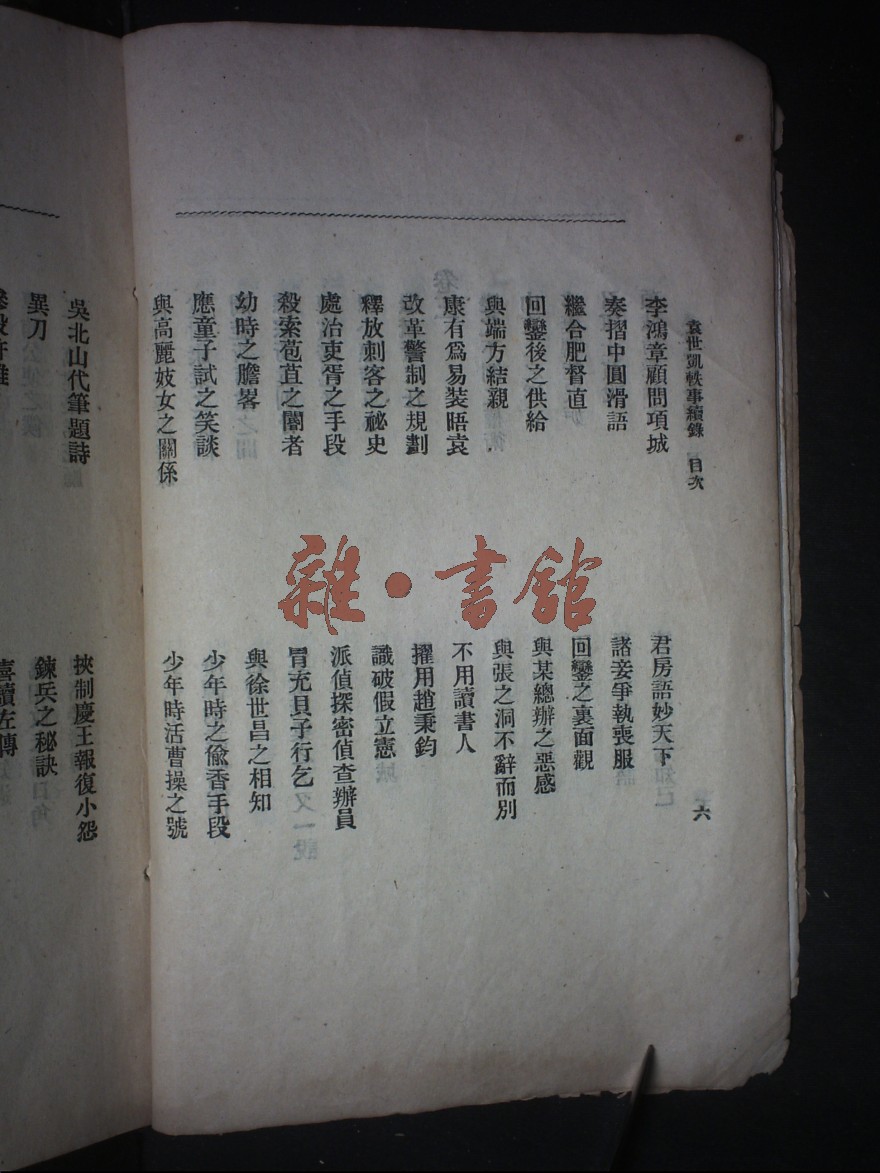 袁世凱軼事續錄 目次
六
李鴻章顧問項城
奏摺中圓滑語
繼合肥督直
回鑾後之供給
與端方結親
康有爲易装晤袁
改革警制之規劃
釋放刺客之祕史
處治吏胥之手段
殺索苞苴之閽者
幼時之膽畧
應童子試之笑談
與高麗妓女之關係
君房語妙天下
諸妾爭執喪服
回鑾之裏面觀
與某總辦之惡感
與張之洞不辭而別
不用讀書人
擢用趙秉鈞
識破假立憲
派偵探密偵查辦員
冒充貝子行乞
與徐世昌之相知
少年時之偸香手段
少年時活曹操之號
吳北山代筆題詩
異刀
挾制慶王報復小怨
鍊兵之秘訣
喜讀左傳
雜·書館